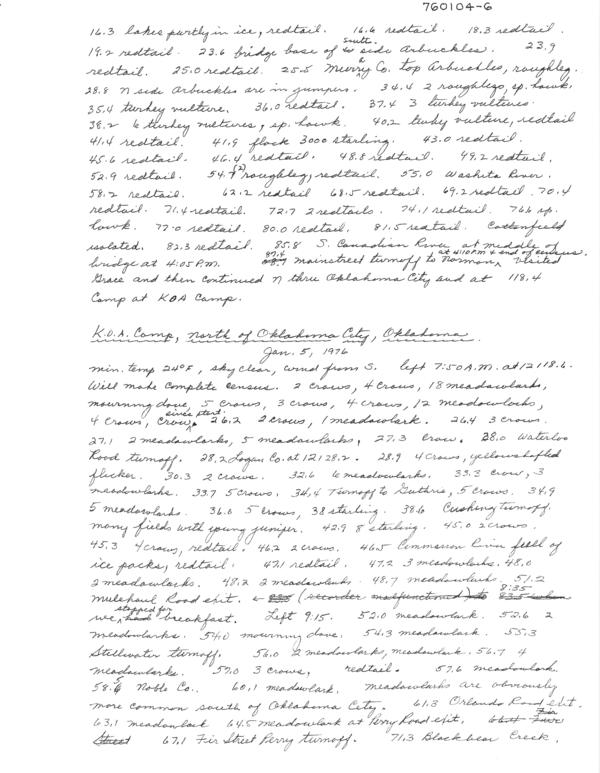 760104-6
16.3 lakes partly in ice, redtail. 16.6 redtail. 18.3 redtail.
19.2 redtail. 23.6 bridge base of south side Arbuckles. 23.9
redtail. 25.0 redtail. 25.5 Murry Co. top Arbuckles, roughleg.
28.8 N side Arbuckles are in junipers. 34.4 2 roughlegs, sp. hawk.
35.4 turkey vulture. 36.0 redtail. 37.4 3 turkey vultures.
38.2 6 turkey vultures, sp. hawk. 40.2 turkey vulture, redtail
41.4 redtail. 41.9 flock 3000 starling. 43.0 redtail.
45.6 redtail. 46.4 redtail. 48.8 redtail. 49.2 redtail.
52.9 redtail. 54.9 (2) roughleg, redtail. 55.0 Washita River.
58.2 redtail. 62.2 redtail 68.5 redtail. 69.2 redtail. 70.4
redtail. 71.4 redtail. 72.7 2 redtails. 74.1 redtail. 76.6 sp.
hawk. 77.0 redtail. 80.0 redtail. 81.5 redtail. Cottonfield
isolated. 82.3 redtail. 85.8 S. Canadian River at middle of
bridge at 4:05 P.M. 87.4 mainstreet turnoff to Norman, at 4:10 P.M. & end of census. Visited
Grace and then continued N thru Oklahoma City and at 118.4
Camp at KOA Camp.
K.O.A. Camp, north of Oklahoma City, Oklahoma.
Jan. 5, 1976
min. temp 24°F, sky clear, wind from S. left 7:50 A.M. at 12118.6.
Will make complete census. 2 crows, 4 crows, 18 meadowlarks,
mourning dove, 5 crows, 3 crows, 4 crows, 12 meadowlarks,
4 crows, crow, since start. 26.2 2 crows, 1 meadowlark. 26.4 3 crows.
27.1 2 meadowlarks, 5 meadowlarks, 27.3 crow. 28.0 Waterloo
Road turnoff. 28.2 Logan Co. at 12128.2. 28.9 4 crows, yellowshafted
flicker. 30.3 2 crows. 32.6 6 meadowlarks. 33.3 crow, 3
meadowlarks. 33.7 5 crows. 34.4 Turnoff to Guthrie, 5 crows. 34.9
5 meadowlarks. 36.6 5 crows, 38 starling. 38.6 Cushing turnoff.
many fields with young juniper. 42.9 8 starling. 45.0 2 crows.
45.3 4 crows, redtail. 46.2 2 crows. 46.5 Cimmerron River full of
ice packs, redtail. 47.1 redtail. 47.2 3 meadowlarks. 48.0
2 meadowlarks. 48.2 2 meadowlarks. 48.7 meadowlark. 51.2
Mulehaul Road exit. (recorder malfunctioned) 8:35 when
we stopped for breakfast. Left 9:15. 52.0 meadowlark. 52.6 2
meadowlarks. 54.0 mourning dove. 54.3 meadowlark. 55.3
Stillwater turnoff. 56.0 2 meadowlarks, meadowlark. 56.7 4
meadowlarks. 57.0 3 crows, redtail. 57.6 meadowlark.
58.5 Noble Co. 60.1 meadowlark. Meadowlarks are obviously
more common south of Oklahoma City. 61.3 Orlando Road exit.
63.1 meadowlark 64.5 meadowlark at Perry Road exit. Fir
Street 67.1 Fir Street Perry turnoff. 71.3 Blackbear Creek.